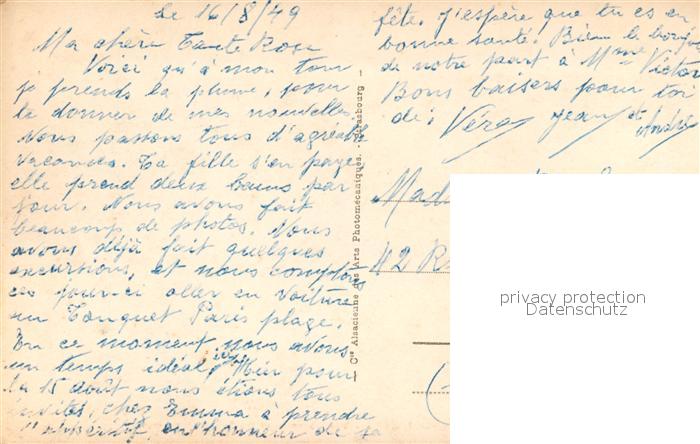 Le 16/8/49
Ma chère Tante Rose
Voici qu'à mon tour
je prends la plume, pour
te donner de mes nouvelles.
Nous passons tous d'agréables
vacances. Ta fille s'en paye
elle prend deux bains par
jour. Nous avons fait
beaucoup de photos. Nous
avons déjà fait quelques
excursions, et nous comptons
ces jours-ci aller en voiture
au Touquet Paris plage.
En ce moment nous avons
un temps idéal, ici. Hier pour
le 15 août nous étions tous
invités, chez Emma a prendre
l'apéritif, en l'honneur de sa
fête. J'espère que tu es en
bonne santé. Bien le bonjour
de notre part à Mme Victor
Bons baisers pour toi
de: Véra, Jean et André
Cie Alsacienne des Arts Photomécaniques. - Strasbourg -
42 R
privacy protection
Datenschutz